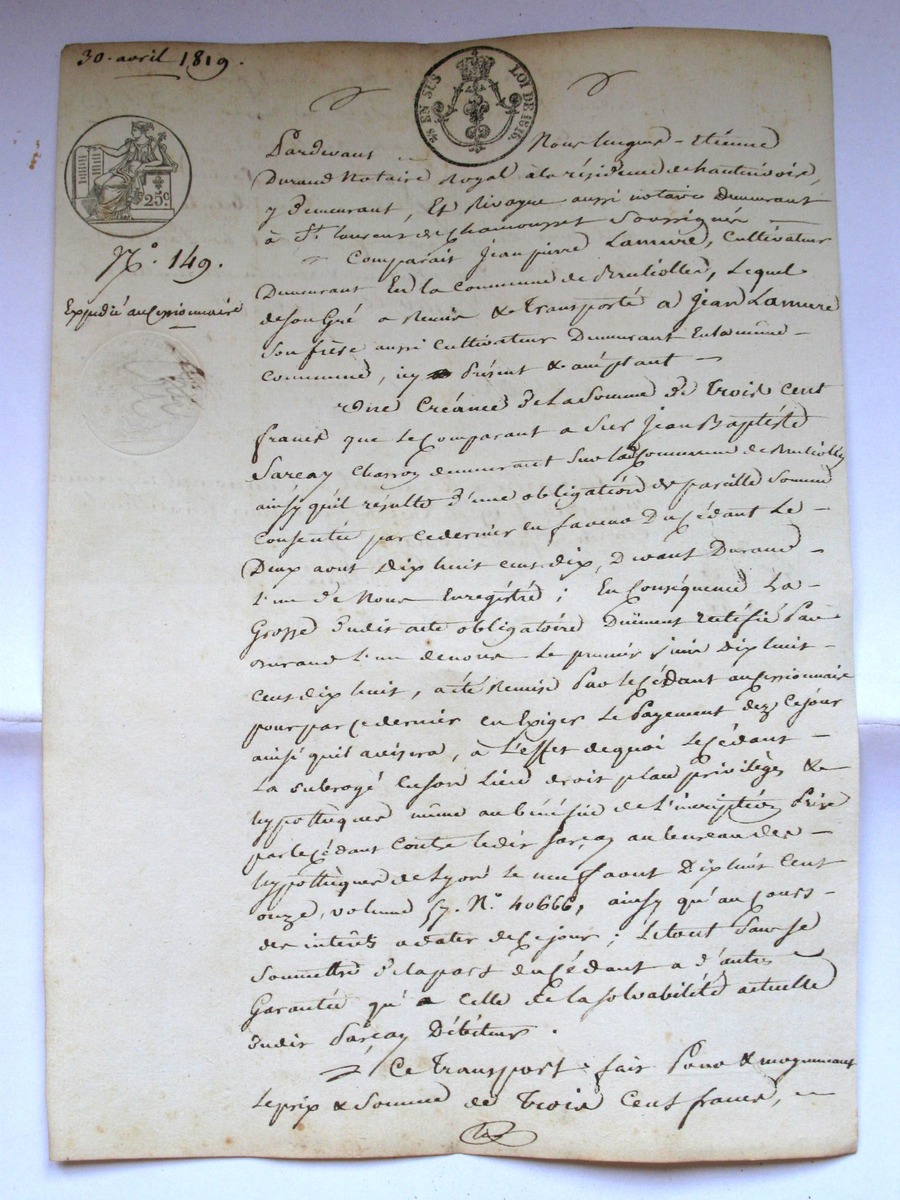 30. avril 1819.
28 EN SUS LOI DE 1816.
25c
N.o 149.
Expédié au Cessionnaire
Pardevant Nous Etienne
Durand Notaire Royal à la résidence de
y demeurant, Et Rivague aussi notaire Demeurant
à St. Laurent de Chamousset Soussignés
Comparait Jean pierre Lamure, Cultivateur
Demeurant En la Commune de Brulioles, Lequel
de son Gré a Remis & transporté a Jean Lamure
Son frère aussi Cultivateur Demeurant En la même
Commune, icy présent & acceptant
Une Créance de La Somme de trois Cent
francs que Le Comparant a Sur Jean Baptiste
demeurant Sur la Commune de Brulioles
ainsy qu'il résulte d'une obligation de pareille Somme
Consentie par ce dernier en faveur Du Cédant Le
Deux aout dix huit cent dix, Devant Durand
l'un de Nous Enregistré ; En Conséquence La
Grosse dudit acte obligatoire Duement rectifié Par
Durand l'un de nous Le premier juin Dix huit
Cent dix huit, a été Remise Par le Cédant au Cessionnaire
pour par ce dernier en Exiger Le Payement dez Ce jour
ainsi quil avisera, à L'effet de quoi Le Cédant
La subrogé en son Lieu droit place privilèges &
hypothèques même au bénéfice de L'inscription Prise
par le Cédant Contre ledit au bureau des
hypothèques de Lyon Le neuf aout Dix huit Cent
onze, volume 57. N.o 40666, ainsy qu'au Cours
des intérêts a dater de Ce jour ; Le tout Sans Se
Soumettre de la part du Cédant a d'autre
Garantie qu'a Celle de la solvabilité actuelle
dudit Débiteur.
Ce transport fait Pour & moyennant
Le prix & Somme de Trois Cent francs,